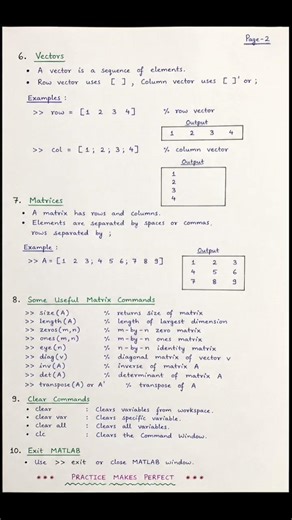 Page-2
6. Vectors
• A vector is a sequence of elements.
• Row vector uses [ ] , Column vector uses [ ]' or ;
Examples :
>> row = [1 2 3 4] % row vector
Output
1 2 3 4
>> col = [1 ; 2 ; 3 ; 4] % column vector
Output
1
2
3
4
7. Matrices
• A matrix has rows and columns.
• Elements are separated by spaces or commas,
rows separated by ;
Example :
>> A = [1 2 3; 4 5 6; 7 8 9]
Output
1 2 3
4 5 6
7 8 9
8. Some Useful Matrix Commands
>> size(A) % returns size of matrix
>> length(A) % length of largest dimension
>> zeros(m,n) % m-by-n zero matrix
>> ones(m,n) % m-by-n ones matrix
>> eye(n) % n-by-n identity matrix
>> diag(v) % diagonal matrix of vector v
>> inv(A) % inverse of matrix A
>> det(A) % determinant of matrix A
>> transpose(A) or A' % transpose of A
9. Clear Commands
• clear : Clears variables from workspace.
• clear var : Clears specific variable.
• clear all : Clears all variables.
• clc : Clears the Command Window.
10. Exit MATLAB
• Use >> exit or close MATLAB window.
*** PRACTICE MAKES PERFECT ***